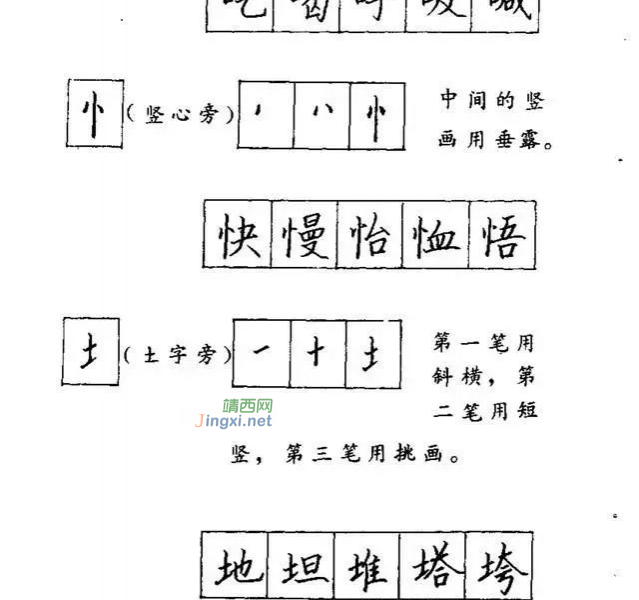 吃 喝 呼 吸 喊
忄 （竖心旁） 丶 丷 忄 中间的竖
画用垂露。
快 慢 怡 恤 悟
土 （土字旁） 一 十 土 第一笔用
斜横，第
二笔用短
竖，第三笔用挑画。
靖西网
Jingxi.net
地 坦 堆 塔 垮